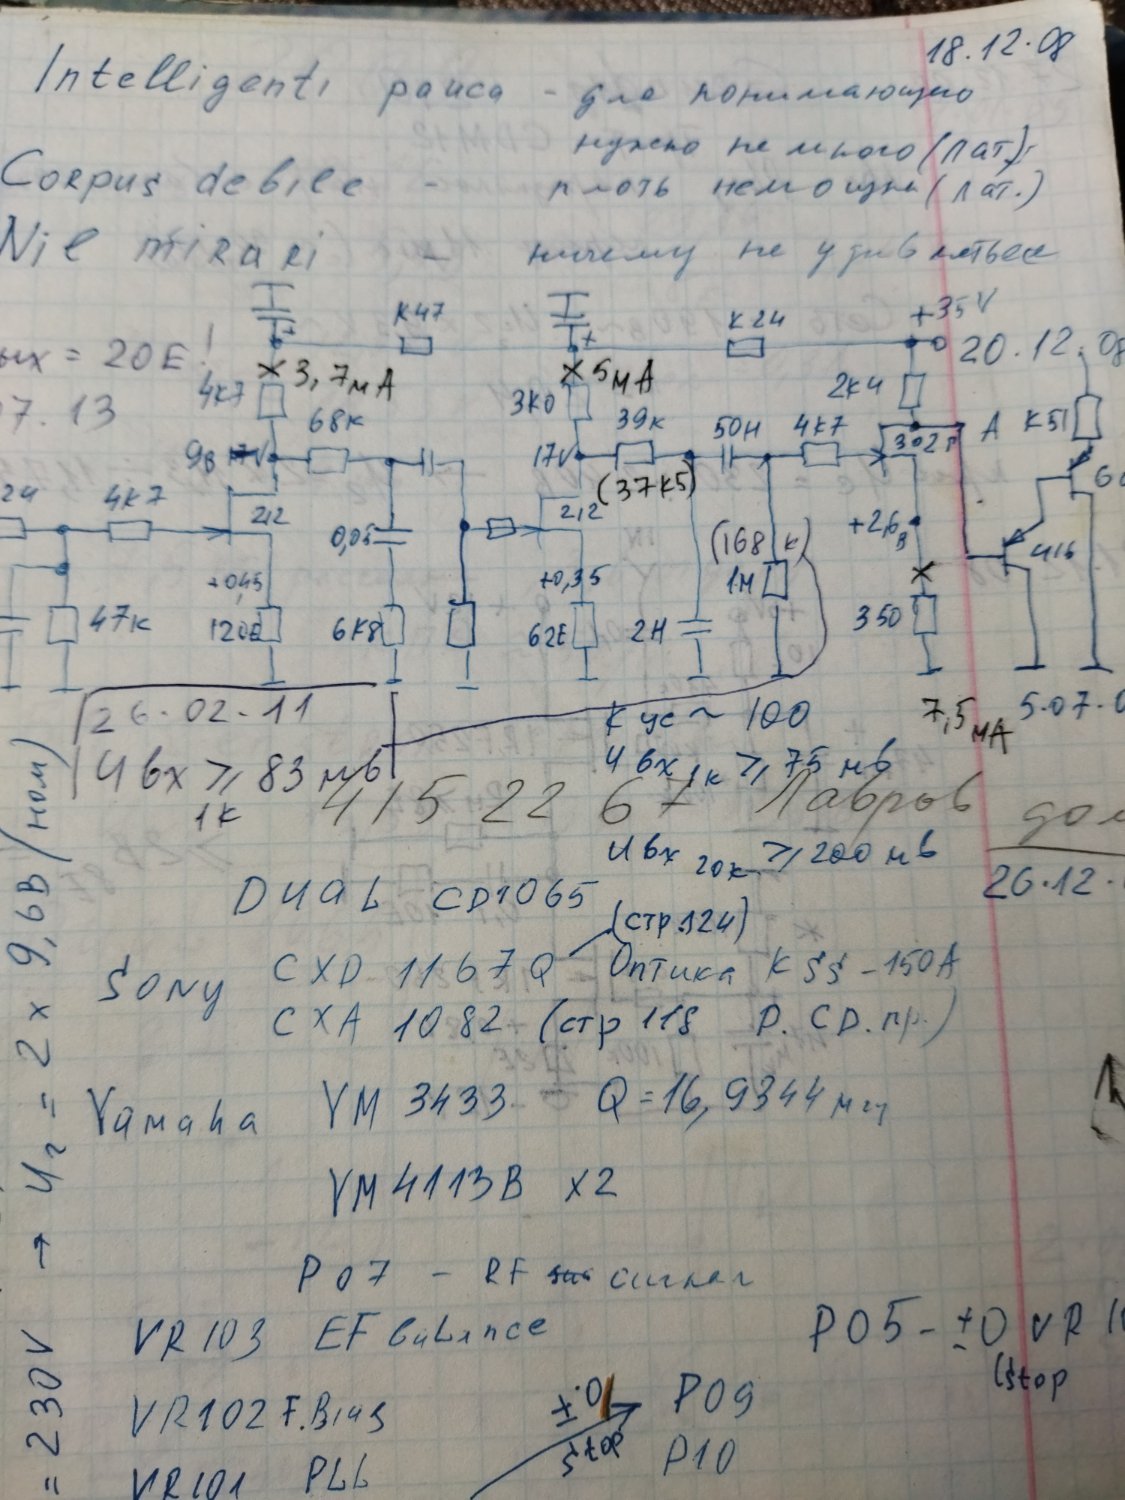 18.12.08
Intelligenti pauca - для понимающего
нужно не много (лат).
Corpus debile - плоть немощна (лат.)
Nil mirari - ничему не удивляться
К47 К24 +35V
ых = 20Е! 20.12.08
3,7мА 5мА
4К7 68к 3К0 39к 50Н 4К7 2К4 А К51
07.13
9в 17V 17V 302г
(37К5)
24 4К7 212 212 +2,6в
0,05 (168к) 416
+0,45 +0,35 1М
47к 120Е 6К8 62Е 2Н 350
26.02.11
Кус ~ 100 7,5мА 5.07.0
Uвх ⩾ 83 мв
1к
Uвх 1к ⩾ 75 мв
415 22 67 Лавров
Uвх 20к ⩾ 200 мв
26.12.
DUAL CD1065
(стр.124)
Sony CXD 1167Q Оптика KSS-150A
CXA 1082 (стр 118 Р. CD.пр.)
Yamaha YM 3433 Q = 16,9344 мгц
YM 4113B x2
P07 - RF сигнал
VR103 EF balance
P05 - ±0 VR 1
(Stop
VR102 F.Bias ±0.1 P09
Stop
VR101 PLL P10
= 230V → Uг = 2 x 9,6В (ном)